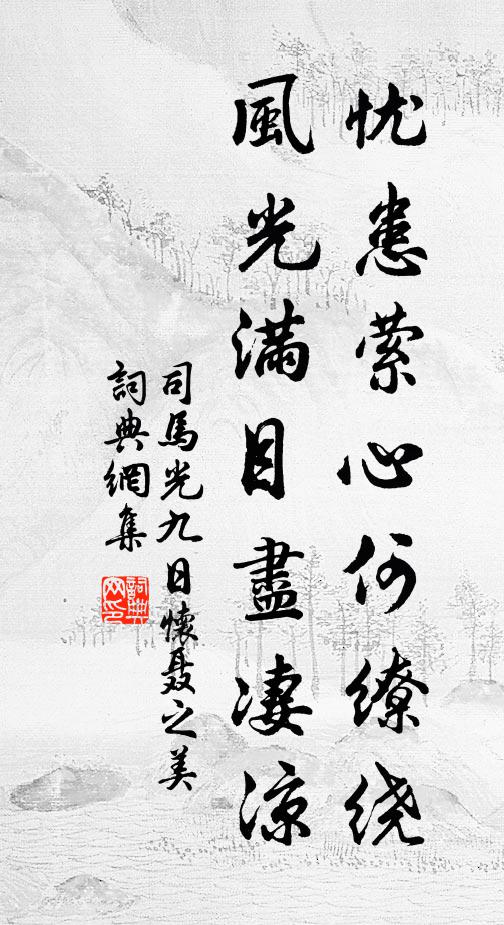 忧患萦心何缭绕
風光满目盡凄涼
司馬光九日懷聂之美
詞典網集